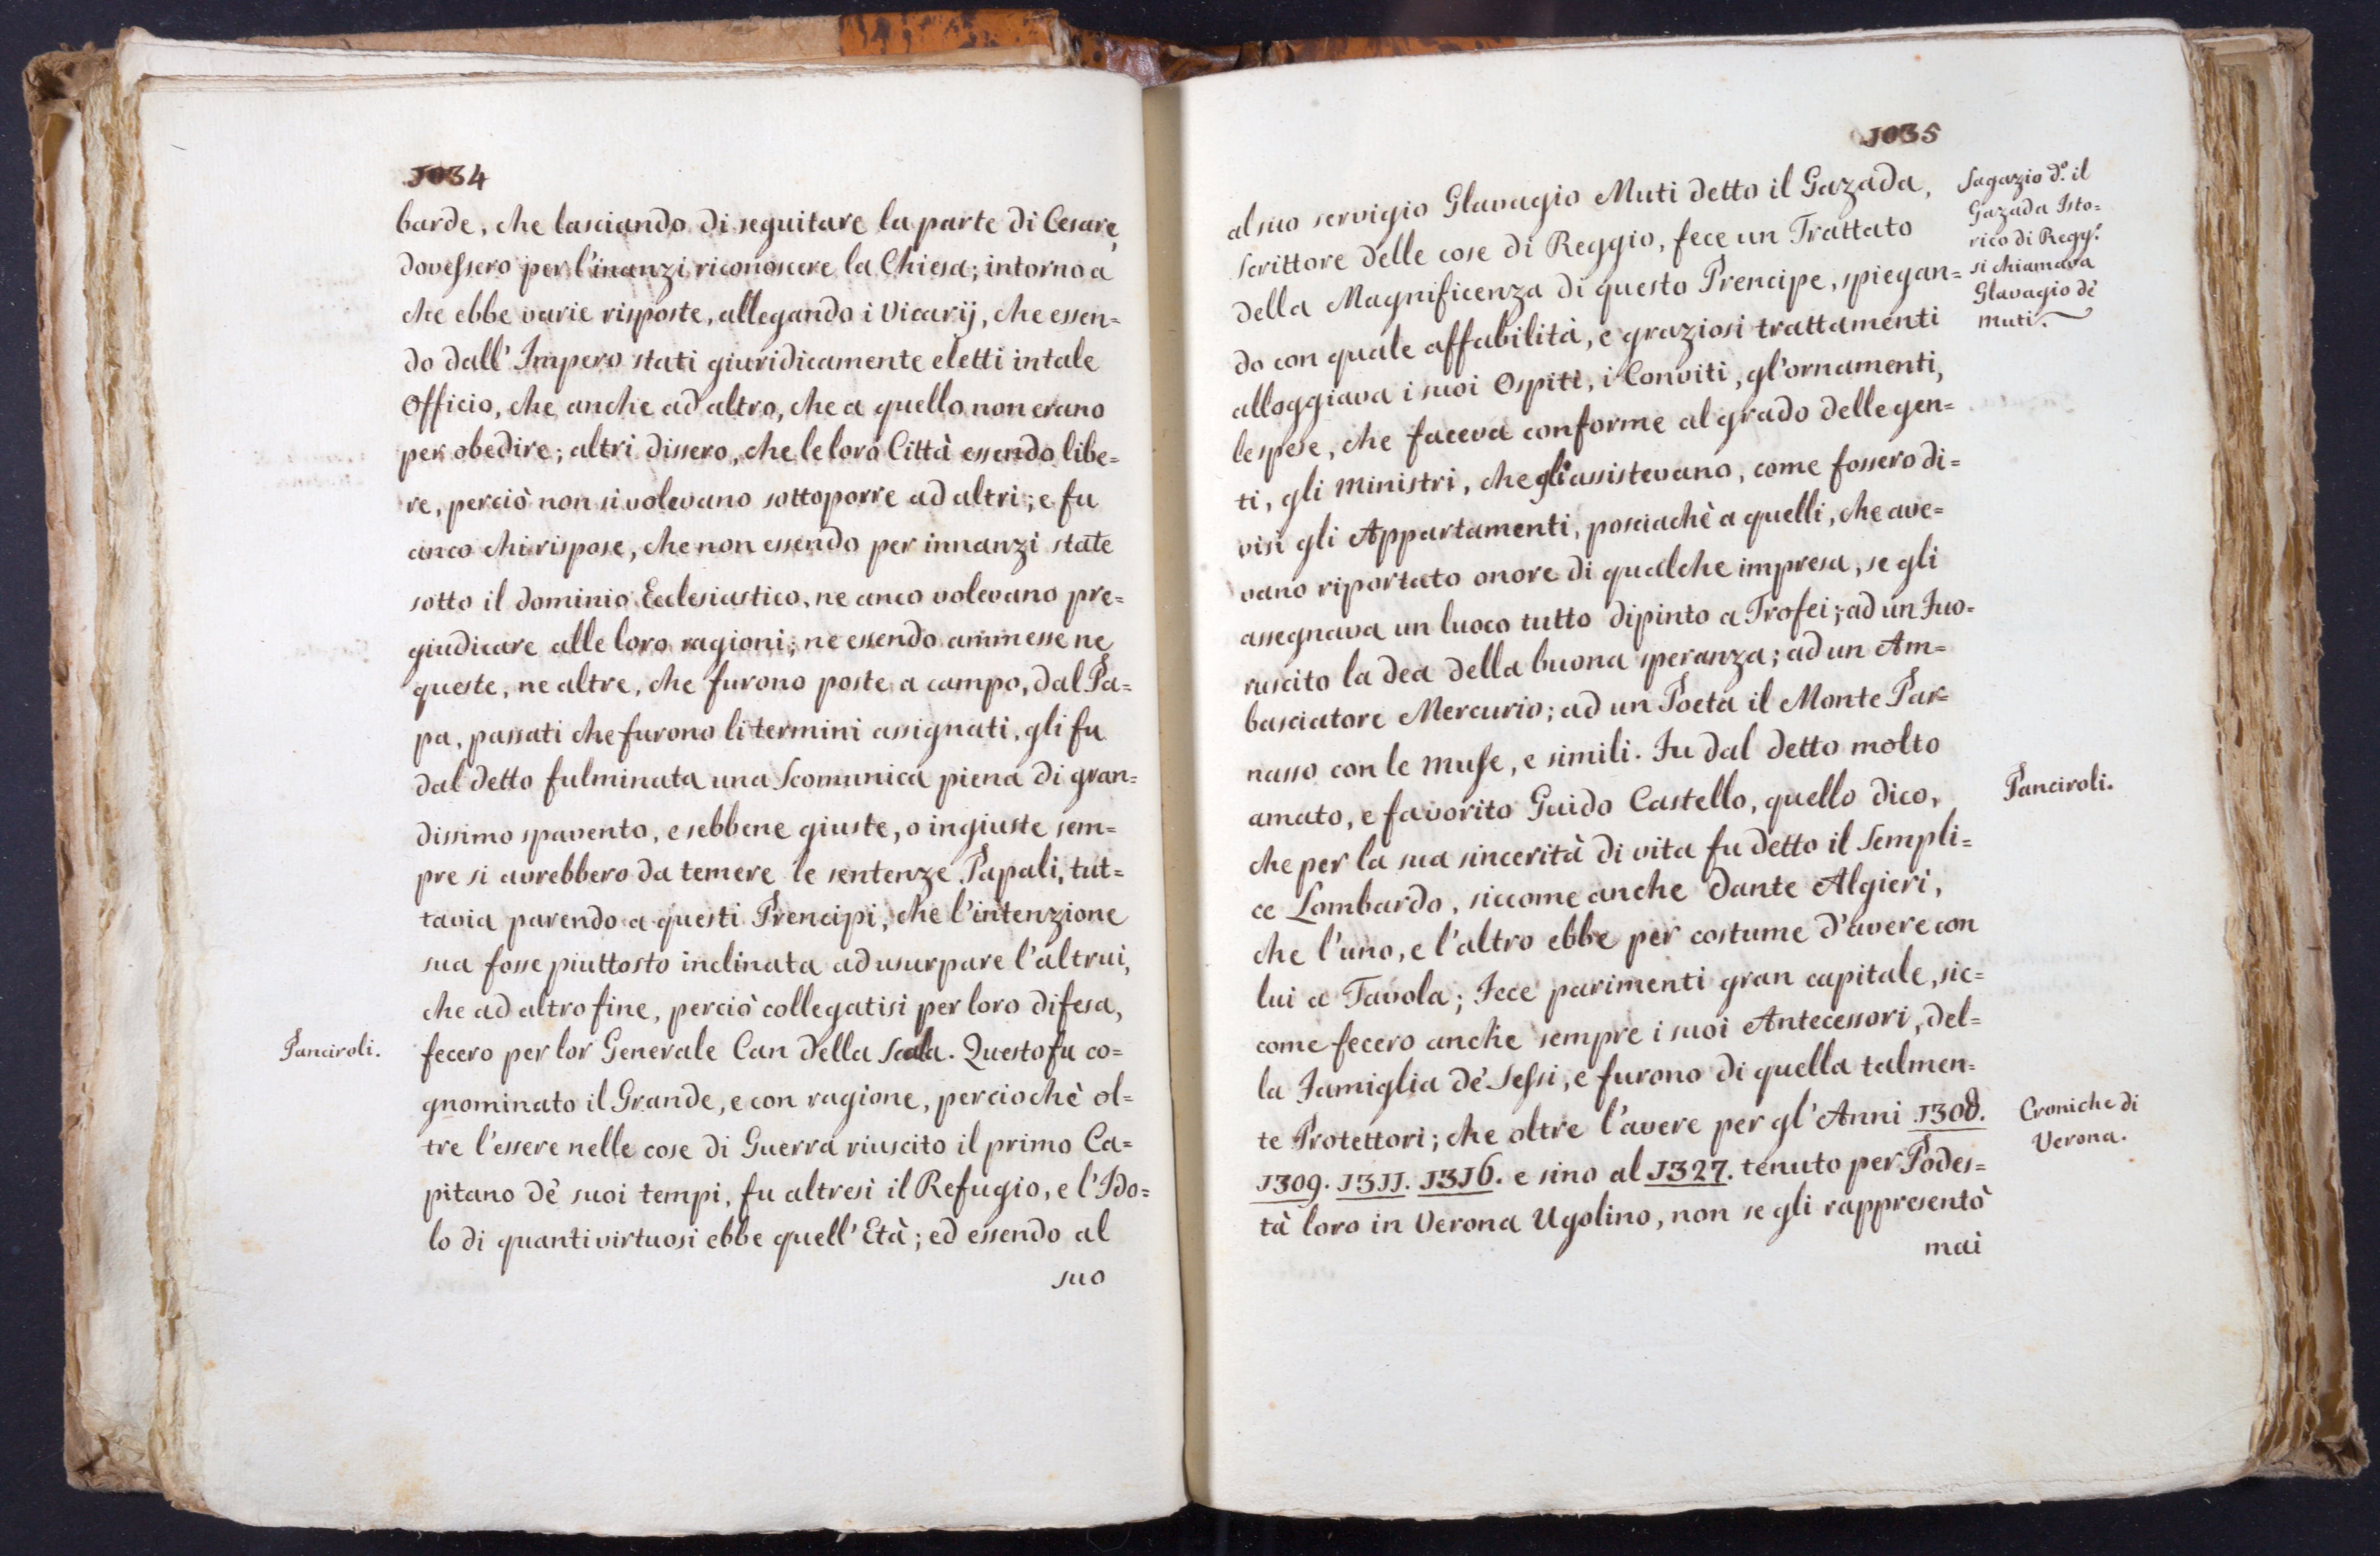 1034
barde, che lasciando di seguitare la parte di Cesare,
dovessero per l'inanzi riconoscere la Chiesa; intorno a
che ebbe varie risposte, allegando i Vicarij, che essen=
do dall' Impero stati giuridicamente eletti in tale
Officio, che anche ad altro, che a quello non erano
per obedire; altri dissero, che le loro Città essendo libe=
re, perciò non si volevano sottoporre ad altri; e fu
anco chi rispose, che non essendo per innanzi state
sotto il dominio Ecclesiastico, ne anco volevano pre=
giudicare alle loro ragioni; ne essendo ammesse ne
queste, ne altre, che furono poste a campo, dal Pa=
pa, passati che furono li termini assignati, gli fu
dal detto fulminata una Scomunica piena di gran=
dissimo spavento, e sebbene giuste, o ingiuste sem=
pre si avrebbero da temere le sentenze Papali, tut=
tavia parendo a questi Prencipi, che l'intenzione
sua fosse piuttosto inclinata ad usurpare l'altrui,
che ad altro fine, perciò collegatisi per loro difesa,
Panciroli.
fecero per lor Generale Can della Scala. Questo fu co=
gnominato il Grande, e con ragione, perciochè ol=
tre l'essere nelle cose di Guerra riuscito il primo Ca=
pitano dè suoi tempi, fu altresì il Refugio, e l'Ido=
lo di quanti virtuosi ebbe quell' Età; ed essendo al
suo
1035
al suo servigio Glavagio Muti detto il Gazada,
Scrittore delle cose di Reggio, fece un Trattato
della Magnificenza di questo Prencipe, spiegan=
do con quale affabilità, e graziosi trattamenti
alloggiava i suoi Ospiti, i Conviti, gl'ornamenti,
le spese, che faceva conforme al grado delle gen=
ti, gli Ministri, che gli assistevano, come fossero di=
visi gli Appartamenti, posciachè a quelli, che ave=
vano riportato onore di qualche impresa, se gli
assegnava un luoco tutto dipinto a Trofei; ad un Fuo=
ruscito la dea della buona speranza; ad un Am=
basciatore Mercurio; ad un Poeta il Monte Par=
nasso con le Muse, e simili. Fu dal detto molto
amato, e favorito Guido Castello, quello dico,
che per la sua sincerità di vita fu detto il Sempli=
ce Lombardo, siccome anche Dante Algieri,
che l'uno, e l'altro ebbe per costume d'avere con
lui a Tavola; Fece parimenti gran capitale, sic=
come fecero anche sempre i suoi Antecessori, del=
la Famiglia dè Sessi, e furono di quella talmen=
te Protettori; che oltre l'avere per gl'Anni 1308.
1309. 1311. 1316. e sino al 1327. tenuto per Podes=
tà loro in Verona Ugolino, non se gli rappresentò
mai
Sagazio d.º il
Gazada Isto=
rico di Regg.º
si chiamava
Glavagio dè
muti.
Panciroli.
Croniche di
Verona.